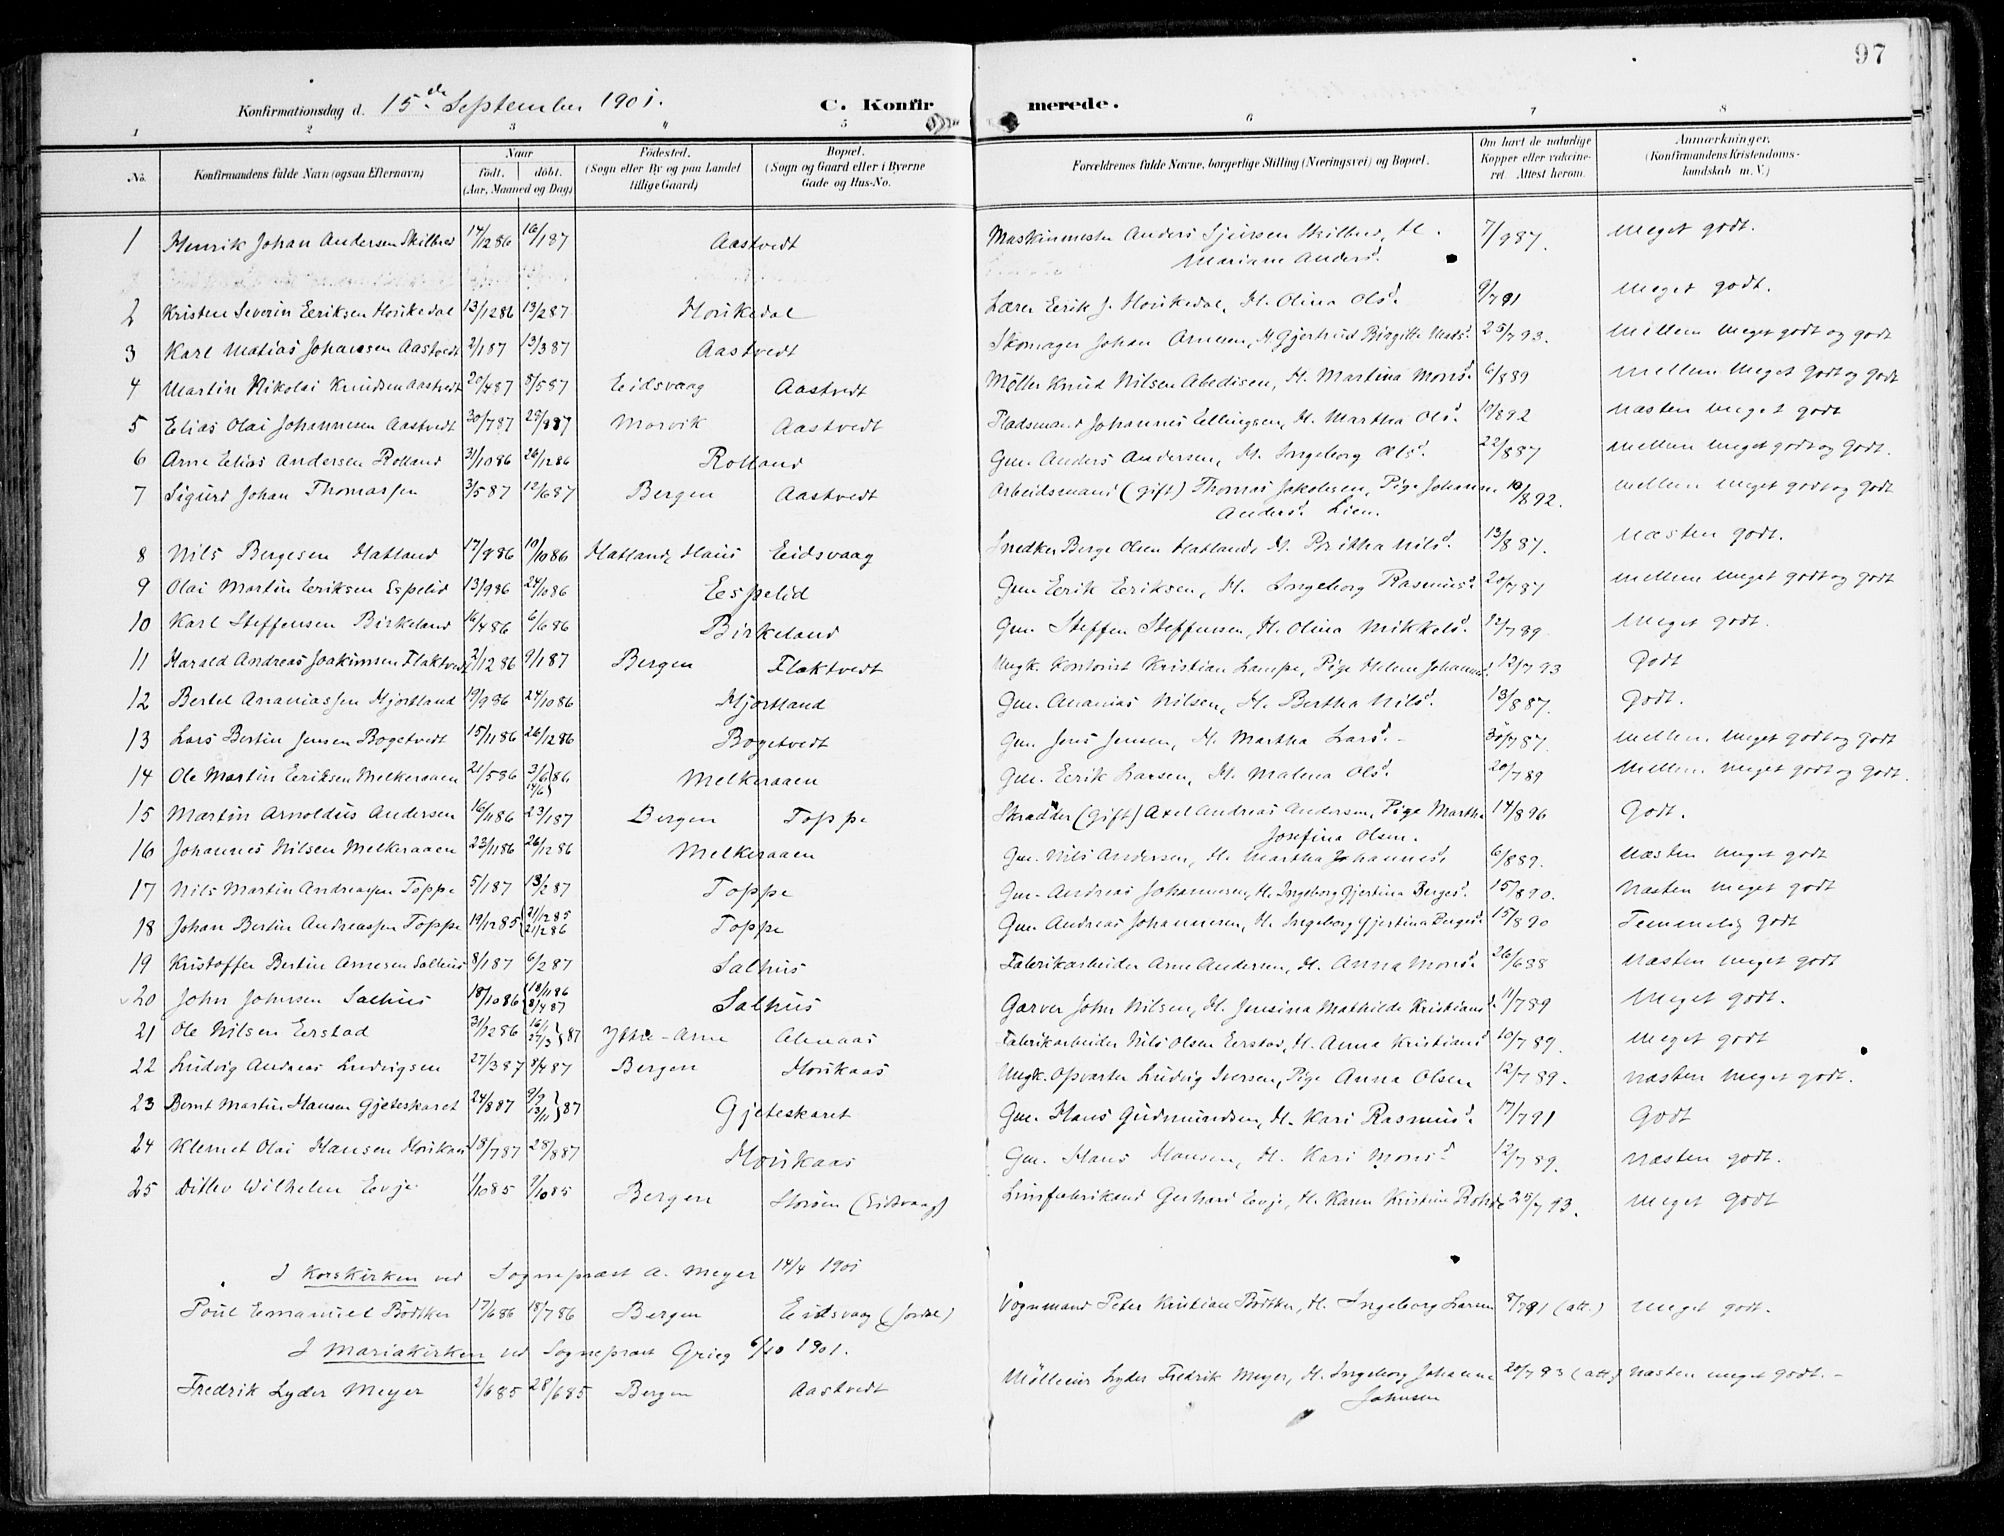 97
Konfirmationsdag d. 15de September 1901.
C. Konfirmerede.
1 2 3 4 5 6 7 8
No. Konfirmandens fulde Navn (ogsaa Efternavn) Naar født. døbt. (Aar, Maaned og Dag) Fødested. (Sogn eller By og paa Landet tillige Gaard) Bopæl. (Sogn og Gaard eller i Byerne Gade og Hus-No. Forældrenes fulde Navne, borgerlige Stilling (Næringsvei) og Bopæl. Om havt de naturlige Kopper eller vakcineret. Attest herom. Anmærkninger. (Konfirmandens Kristendomskundskab m. V.)
1 Henrik Johan Andersen Skilbred 14/1286 16/187 Aastvedt Maskinmester Anders Sjursen Skilbred, H. 7/987. Meget godt.
Mariane Andersd.
2 Kristen Severin Eeriksen Hourkedal 13/1286 13/287 Hourkedal Lærer Eerik J. Hourkedal, H. Olina Olsd. 9/791 Meget godt.
3 Karl Matias Johansen Aastvedt 2/187 13/387 Aastvedt Skomager Johan Arnesen, H. Gjertrud Birgitte Madsd. 25/793. Mellem meget godt og godt
4 Martin Nikolai Knudsen Aastvedt 20/487 8/587 Eidsvaag Aastvedt Møller Knud Nilsen Abedisen, H. Martina Monsd. 6/889 Mellem meget godt og godt
5 Elias Olai Johannesen Aastvedt 30/787 29/887 Morvik Aastvedt Pladsmand Johannes Ellingsen, H. Martha Olsd. 17/892 Næsten meget godt
6 Arne Elias Andersen Rolland 31/1086 26/1286 Rolland Gm. Anders Andersen, H. Ingeborg Olsd. 22/887 Mellem meget godt og godt.
7 Sigurd Johan Thomassen 3/587 12/687 Bergen Aastvedt Arbeidsmand (gift) Thomas Jakobsen, Pige Johanne 10/892. Mellem meget godt og godt
Andersd. Lien.
8 Nils Bergesen Hatland 17/986 10/1086 Hatland, Haus Eidsvaag Snedker Berge Olsen Hatland, H. Britha Nilsd. 13/887. Næsten godt.
9 Olai Martin Eeriksen Espelid 13/986 24/1086 Eespelid Gm. Eerik Eeriksen, H. Ingeborg Rasmusd. 20/787 Mellem meget godt og godt
10 Karl Steffensen Birkeland 16/486 6/686 Birkeland Gm. Steffen Steffensen, H. Olina Mikkelsd. 12/789. Meget godt.
11 Harald Andreas Joakimsen Flaktvedt 3/1286 9/187 Bergen Flaktvedt Ungk. Kontorist Kristian Lampe, Pige Helene Johannesd. 12/793 Godt
12 Bertel Ananiassen Hjortland 19/986 24/1086 Hjortland Gm. Ananias Nilsen, H. Bertha Nilsd. 13/887. Godt.
13 Lars Bertin Jensen Bogetvedt 15/1186 26/1286 Bogetvedt Gm. Jens Jensen, H. Martha Larsd. 30/787. Mellem meget godt og godt
14 Ole Martin Eeriksen Melkeraaen 21/586 3/6 14/6 } 86 Melkeraaen Gm. Eerik Larsen, H. Malena Olsd. 20/789 Mellem meget godt og godt.
15 Martin Arnoldus Andersen 16/1186 23/187 Bergen Toppe Skrædder (gift) Axel Andreas Andersen, Pige Martha 14/896 Godt.
Josefina Olsen.
16 Johannes Nilsen Melkeraaen 23/1186 26/1286 Melkeraaen Gm. Nils Andersen, H. Martha Johannesd. 6/889. Næsten meget godt
17 Nils Martin Andreassen Toppe 5/187 13/287 Toppe Gm. Andreas Johannesen, H. Ingeborg Gjertina Bergesd. 15/890. Næsten meget godt
18 Johan Bertin Andreassen Toppe 19/1285 { 21/1285 21/286 Toppe Gm. Andreas Johannesen, H. Ingeborg Gjertina Bergesd. 15/890 Temmelig godt
19 Kristoffer Bertin Arnesen Salhus 8/187 6/287 Salhus Fabrikarbeider Arne Andersen, H. Anna Monsd. 26/688 Næsten meget godt
20 John Johnsen Salhus 18/1086 { 18/1186 8/487 Salhus Garver John Nilsen, H. Jensina Mathilde Kristiansd. 11/789 Meget godt.
21 Ole Nilsen Eerstad 31/1286 16/1 27/3 } 87 Ytre-Arne Alenaas Fabrikarbeider Nils Olsen Eerstad, H. Anna Kristiansd. 10/789. Meget godt
22 Ludvig Andreas Ludvigsen 27/387 8/487 Bergen Hourkaas Ungk. Opvarter Ludvig Iversen, Pige Anna Olsen 12/789. Næsten meget godt.
23 Bernt Martin Hansen Gjeteskaret 24/887 9/9 13/11 } 87 Gjeteskaret Gm. Hans Gudmundsen, H. Kari Rasmusd. 17/791 Godt
24 Klemet Olai Hansen Hourkaas 18/787 28/887 Hourkaas Gm. Hans Hansen, H. Kari Monsd. 12/789. Næsten godt.
25 Ditlev Wilhelm Evje 1/1085 7/1085 Bergen Storøen (Eidsvaag) Limfabrikand Gerhard Evje, H. Karen Kristine Rohde 25/793. Meget godt
I Korskirken ved Sognepræst A. Meyer 14/4 1901
Poul Emanuel Bødtker 17/686 18/786 Bergen Eidsvaag (Jordal) Vognmand Peter Kristian Bødtker, H. Ingeborg Larsen 8/791 (att.) Meget godt.
I Mariakirken ved Sognepræst Grieg 6/10 1901.
Fredrik Lyder Meyer 2/685 28/685 Bergen Aastvedt Mølleeier Lyder Fredrik Meyer, H. Ingeborg Johanne 20/793 (att.) Næsten meget godt.
Johnsen